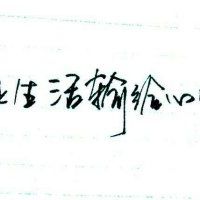 生活输给心